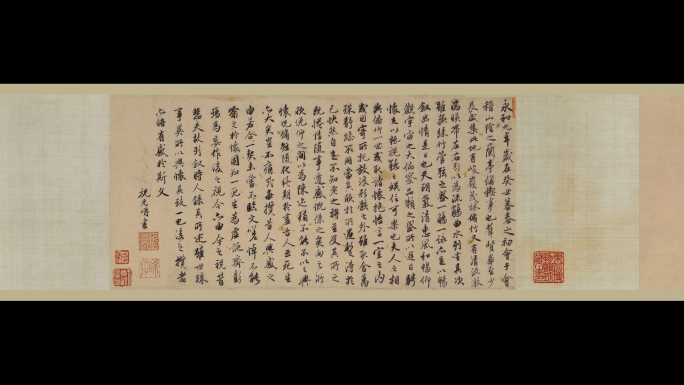 永和九年歲在癸丑暮春之初會于會
稽山陰之蘭亭脩稧事也羣賢畢至少
長咸集此地有峻領茂林脩竹又有清流激
湍暎帶左右引以為流觴曲水列坐其次
雖無絲竹管弦之盛一觴一詠亦足以暢
叙幽情是日也天朗氣清惠風和暢仰
觀宇宙之大俯察品類之盛所以遊目騁
懷足以極視聽之娛信可樂也夫人之相
與俯仰一世或取諸懷抱悟言一室之內
或因寄所託放浪形骸之外雖取舍萬
殊靜躁不同當其欣於所遇暫得於
己快然自足不知老之將至及其所之
既惓情隨事遷感慨係之矣向之所
欣俛仰之間以為陳迹猶不能不以之興
懷況脩短隨化終期於盡古人云死生
亦大矣豈不痛哉每攬昔人興感之
由若合一契未嘗不臨文嗟悼不能
喻之於懷固知一死生為虛誕齊彭
殤為妄作後之視今亦由今之視昔
悲夫故列叙時人錄其所述雖世殊
事異所以興懷其致一也後之攬者
亦將有感於斯文
祝允明書